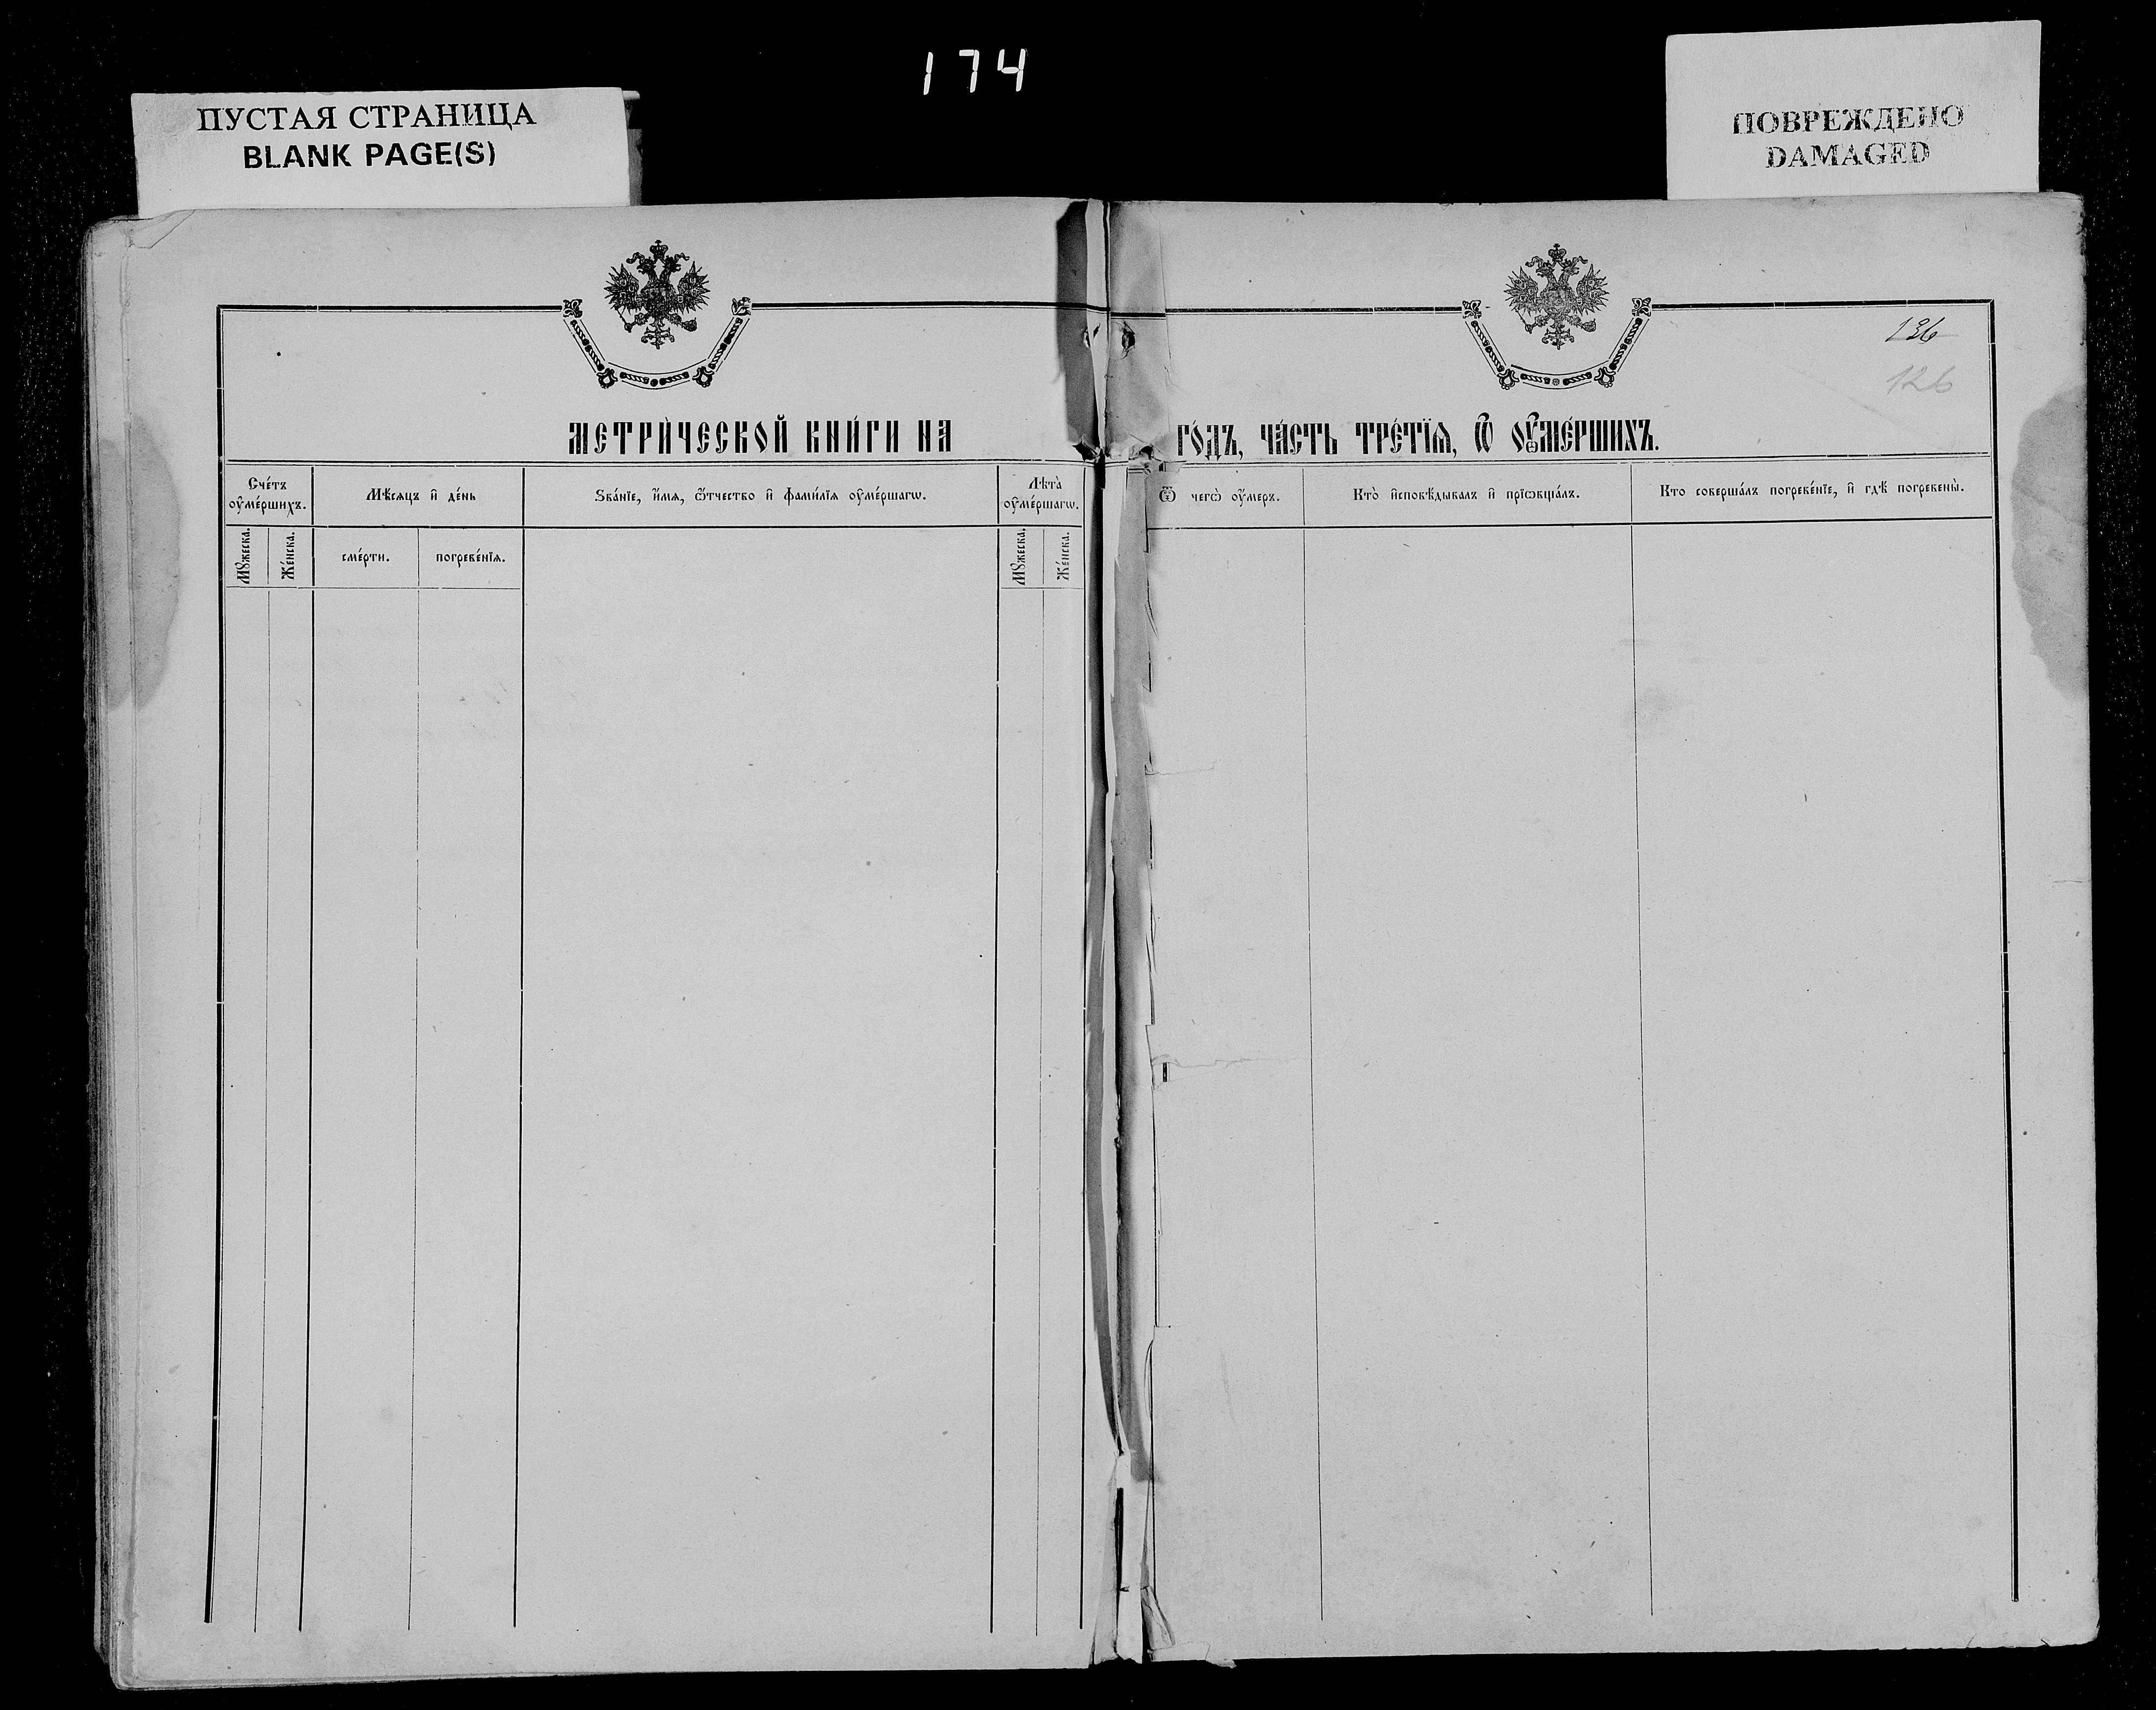 174
ПУСТАЯ СТРАНИЦА
BLANK PAGE(S)
ПОВРЕЖДЕНО
DAMAGED
136
126
МЕТРИ́ЧЕСКОЙ КНИ́ГИ НА
ГО́ДЪ, ЧА́СТЬ ТРЕ́ТЇѦ, Ѡ҆ ОУ҆МЕ́РШИХЪ.
Сче́тъ
оу҆ме́ршихъ.
Мѣ́сяцъ и҆ де́нь
Ѕва́нїе, и҆́мѧ, ѻ҆́тчество и҆ фами́лїѧ оу҆ме́ршагѡ.
Лѣта̀
оу҆ме́ршагѡ.
Ѿ чегѡ̀ оу҆́меръ.
Кто̀ и҆сповѣ́дывалъ и҆ прїѡбща́лъ.
Кто соверша́лъ погребе́нїе, и҆ гдѣ̀ погребены̀.
Мꙋ́жеска.
Же́нска.
сме́рти.
погребе́нїѧ.
Мꙋ́жеска.
Же́нска.